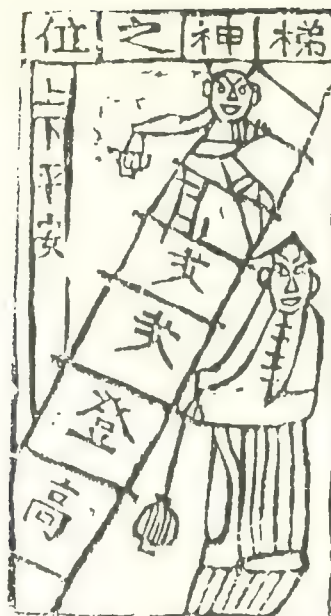 梯神之位
上下平安
步步登高